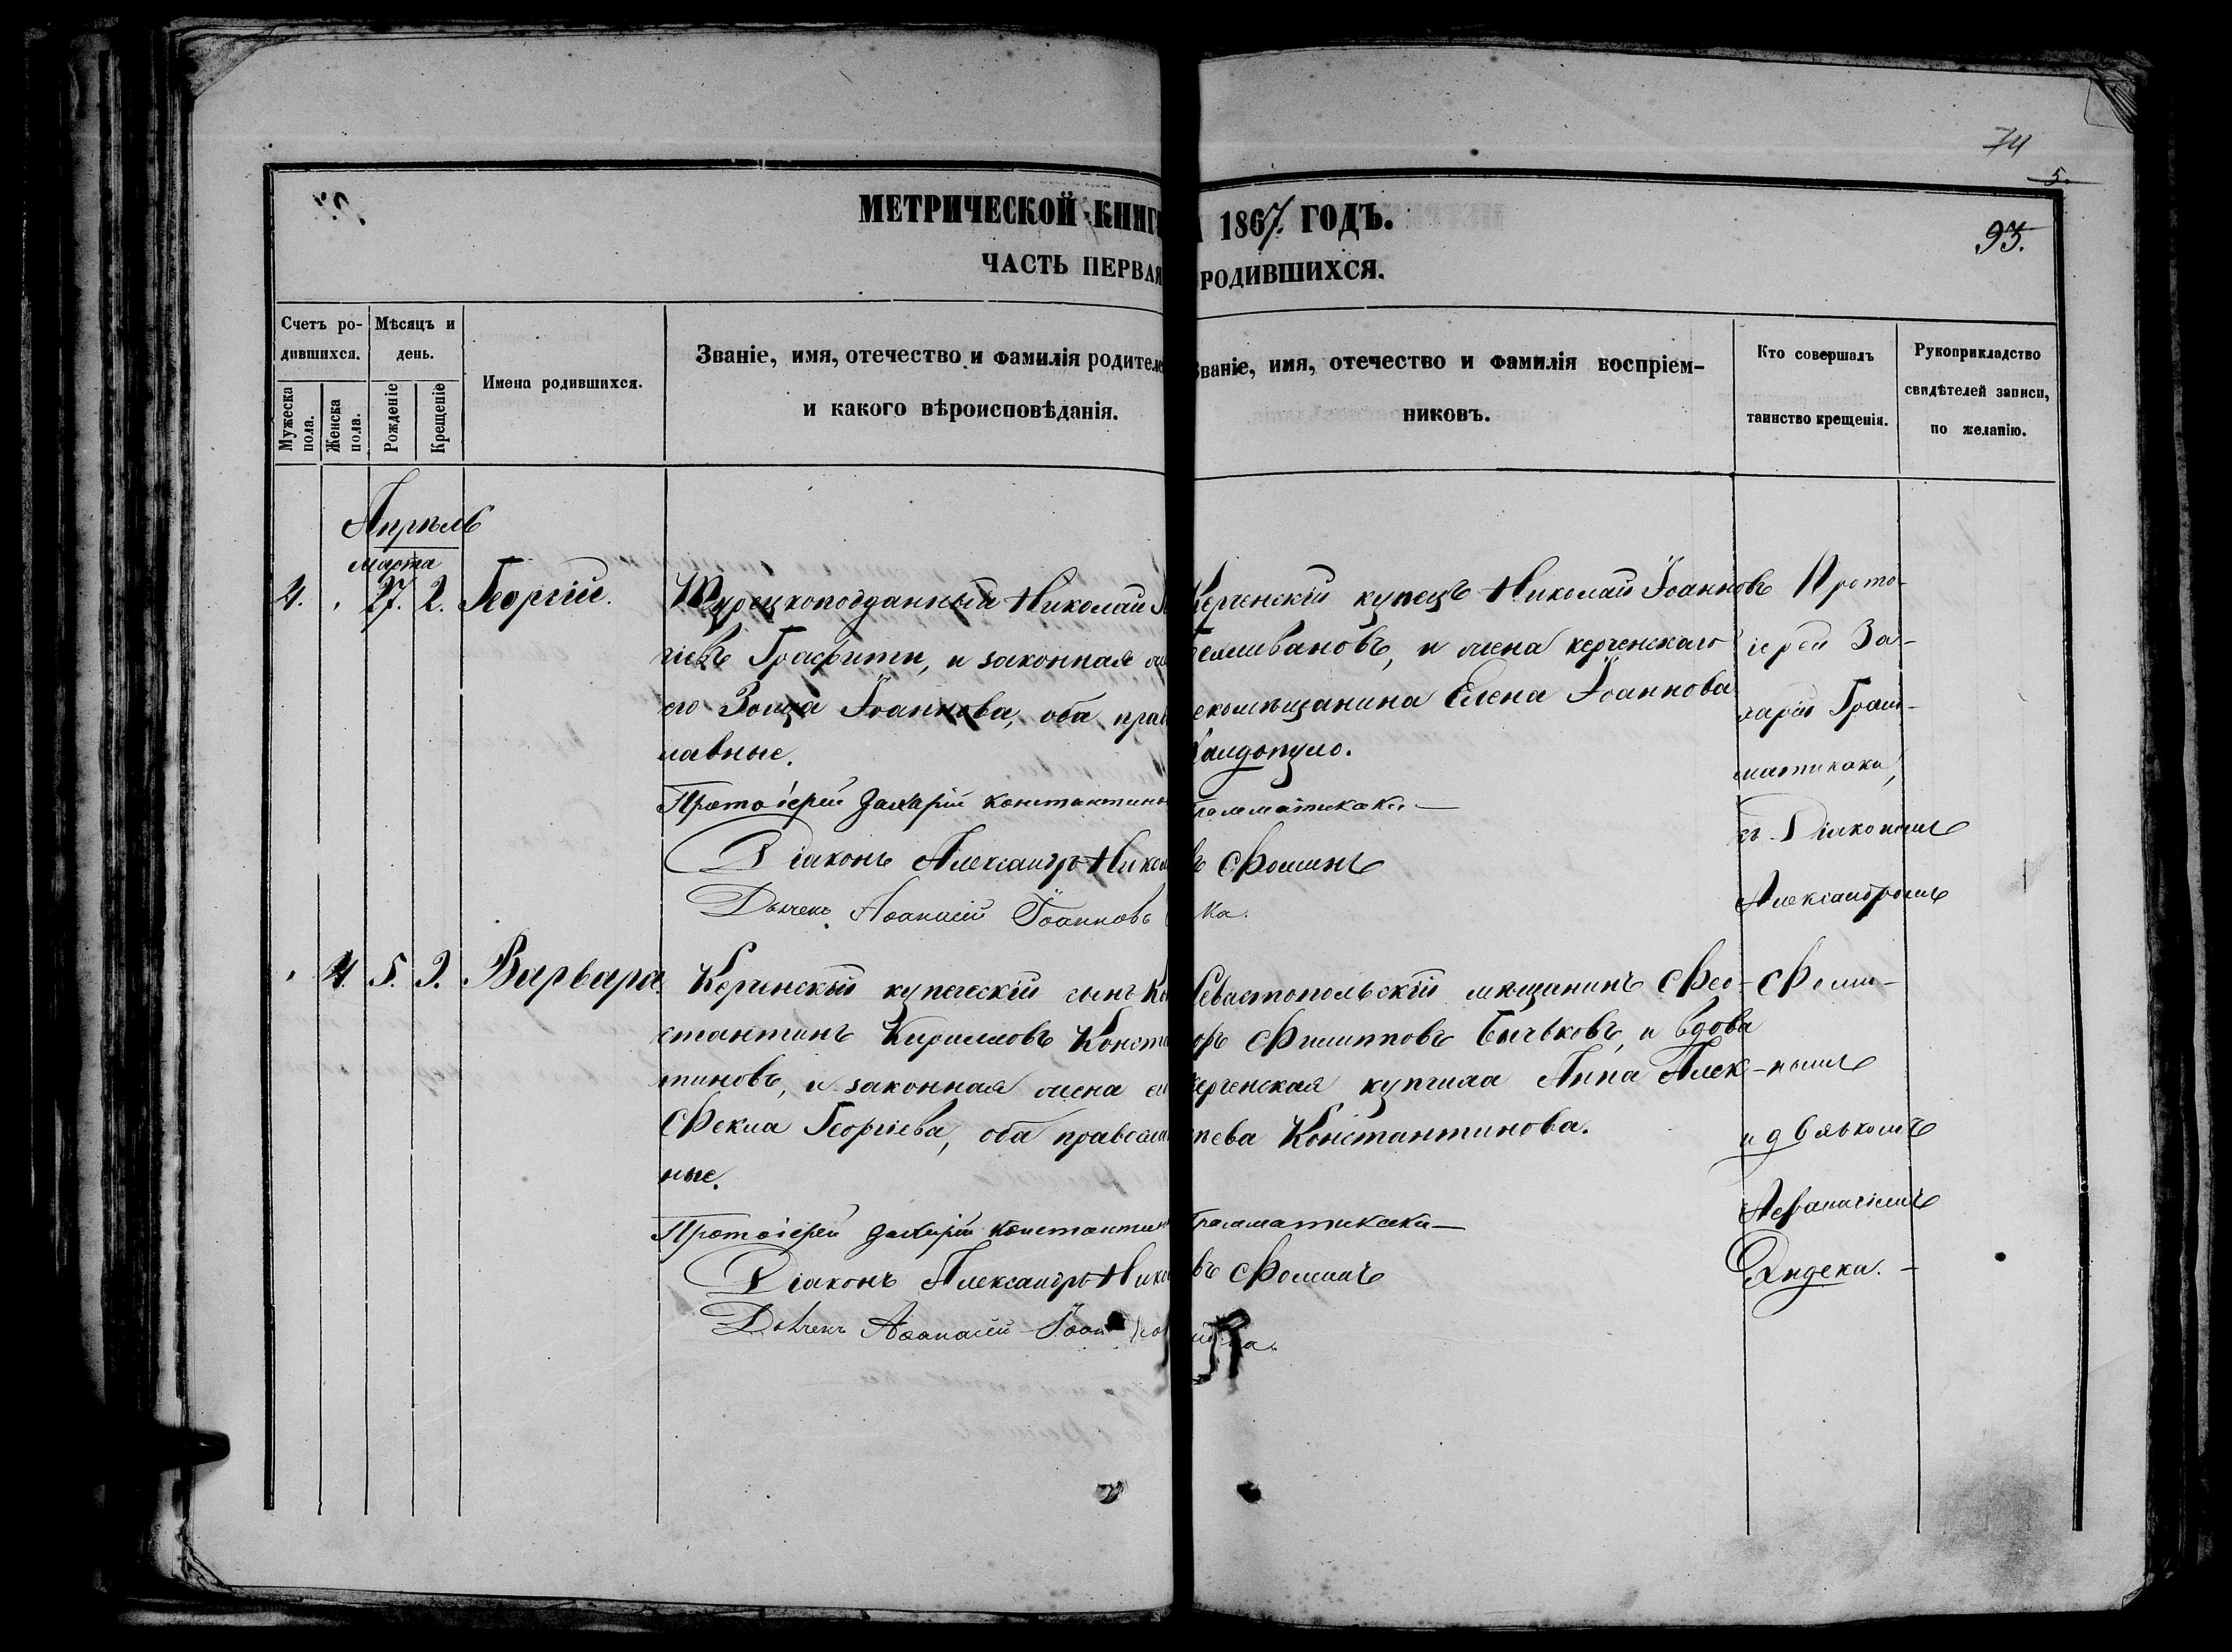 74
5.
93.
МЕТРИЧЕСКОЙ КНИГ 1867. ГОДЪ.
ЧАСТЬ ПЕРВАЯ РОДИВШИХСЯ.
Счетъ ро-
дившихся.
Мужеска
пола.
Женска
пола.
Мѣсяцъ и
день.
Рожденіе
Крещеніе
Имена родившихся.
Званіе, имя, отечество и фамилія родителе
и какого вѣроисповѣданія.
Званіе, имя, отечество и фамилія воспріем-
никовъ.
Кто совершалъ
таинство крещенія.
Рукоприкладство
свидѣтелей записи,
по желанію.
Апрѣль
марта
4. 27. 2. Георгій.
Турецкоподданный Николай
гіевъ Графити, и законная
его Зоица Іоаннова, оба прав
лавные.
Протоіерей Захарій Константино
Діаконъ Александръ Никол
Дьячекъ Аѳанасій Іоанновъ
Керченскій купецъ Николай Іоанновъ
Селивановъ, и жена керченскаго
екомѣщанина Елена Іоаннова
Халдопуло.
Грамматикаки
въ Ѳоминъ
ка.
4. 5. 9. Варвара.
Керченскій купеческій сынъ Ко
стантинъ Кирилловъ Конста
тиновъ, и законная жена ег
Ѳекла Георгіева, оба правосла
ные.
Протоіерей Захарій Константин
Діаконъ Александръ Нико
Дьячекъ Аѳанасій Іоан
Севастопольскій мѣщанинъ Ѳео-
оръ Филипповъ Бычковъ, и вдова
керченская купчиха Анна Алек-
ѣева Константинова.
Грамматикаки
въ Ѳоминъ
Прото-
іерей За-
харій Грам-
матикаки,
съ Діакономъ
Александромъ
Ѳоми-
нымъ
и дьячкомъ
Аѳанасіемъ
Яндека.